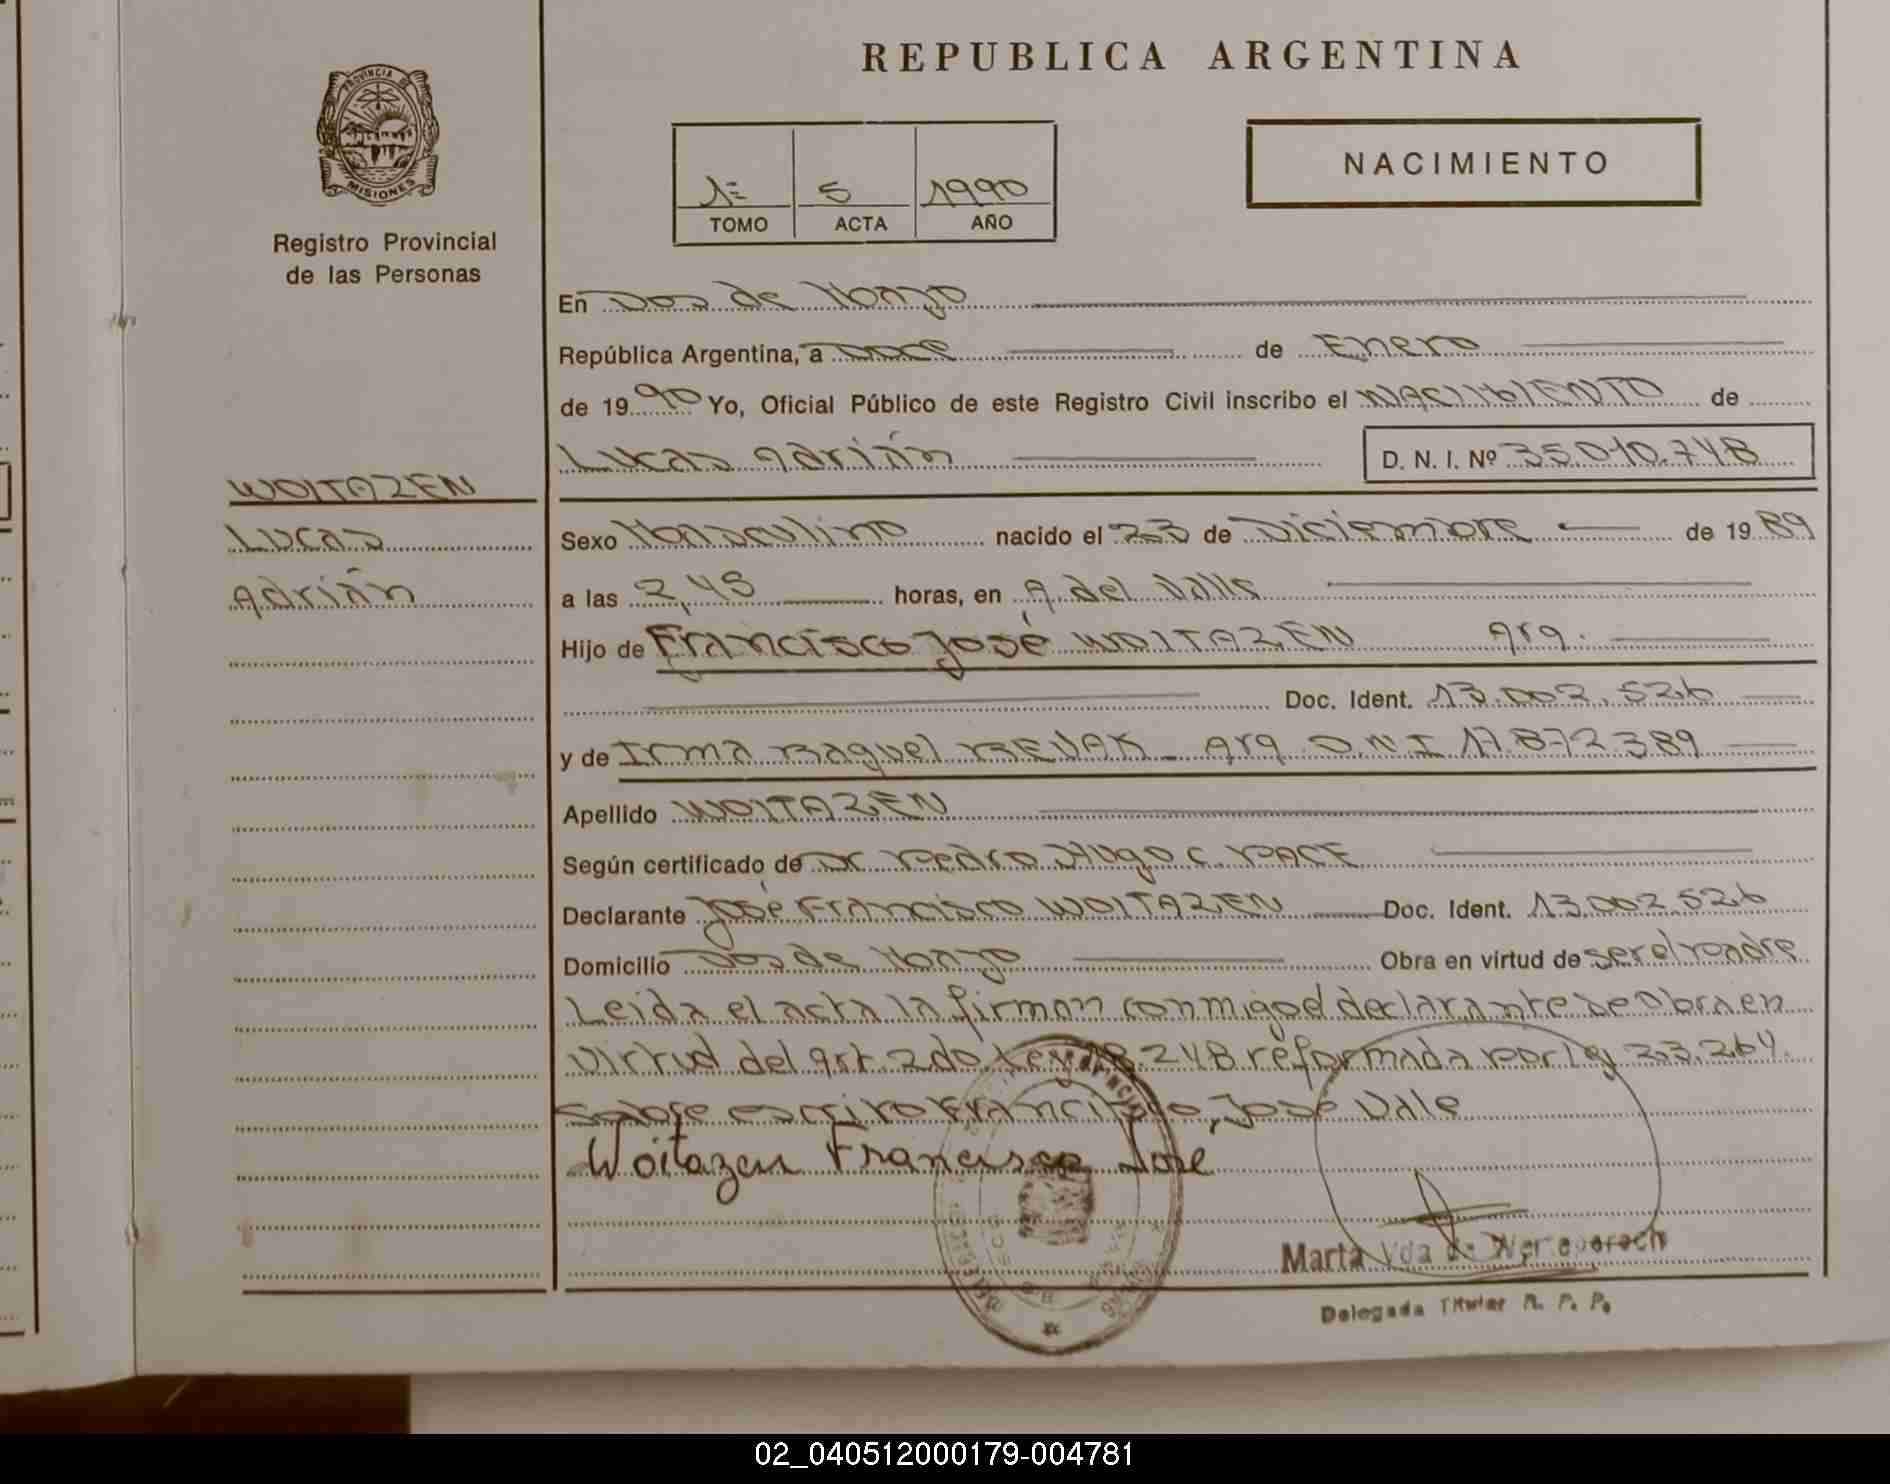 REPUBLICA ARGENTINA
PROVINCIA DE
MISIONES
Registro Provincial
de las Personas
1º 5 1990
TOMO ACTA AÑO
NACIMIENTO
En Dos de Mayo
República Argentina, a Doce de Enero
de 1990 Yo, Oficial Público de este Registro Civil inscribo el NACIMIENTO de
Lucas Adrián D. N. I. Nº 35.010.748
WOITAZEN
Lucas
Adrián
Sexo Masculino nacido el 23 de Diciembre de 1989
a las 2,45 horas, en A. del Valle
Hijo de Francisco José WOITAZEN Arg.
Doc. Ident. 13.002.526
y de Irma Raquel REVAK Arg D.N.I 17.872.389
Apellido WOITAZEN
Según certificado de Dr Pedro Hugo C. PACE
Declarante José Francisco WOITAZEN Doc. Ident. 13.002.526
Domicilio Dos de Mayo Obra en virtud de ser el padre
Leida el acta la firman conmigo el declarante se Obra en
virtud del art. 2do. Ley 18.248 reformada por ley 23.264.
Sobre escrito Francisco, José Vale
Woitazen Francisco Jose
Marta Vda de
Delegada Titular R. P. P.
02_040512000179-004781